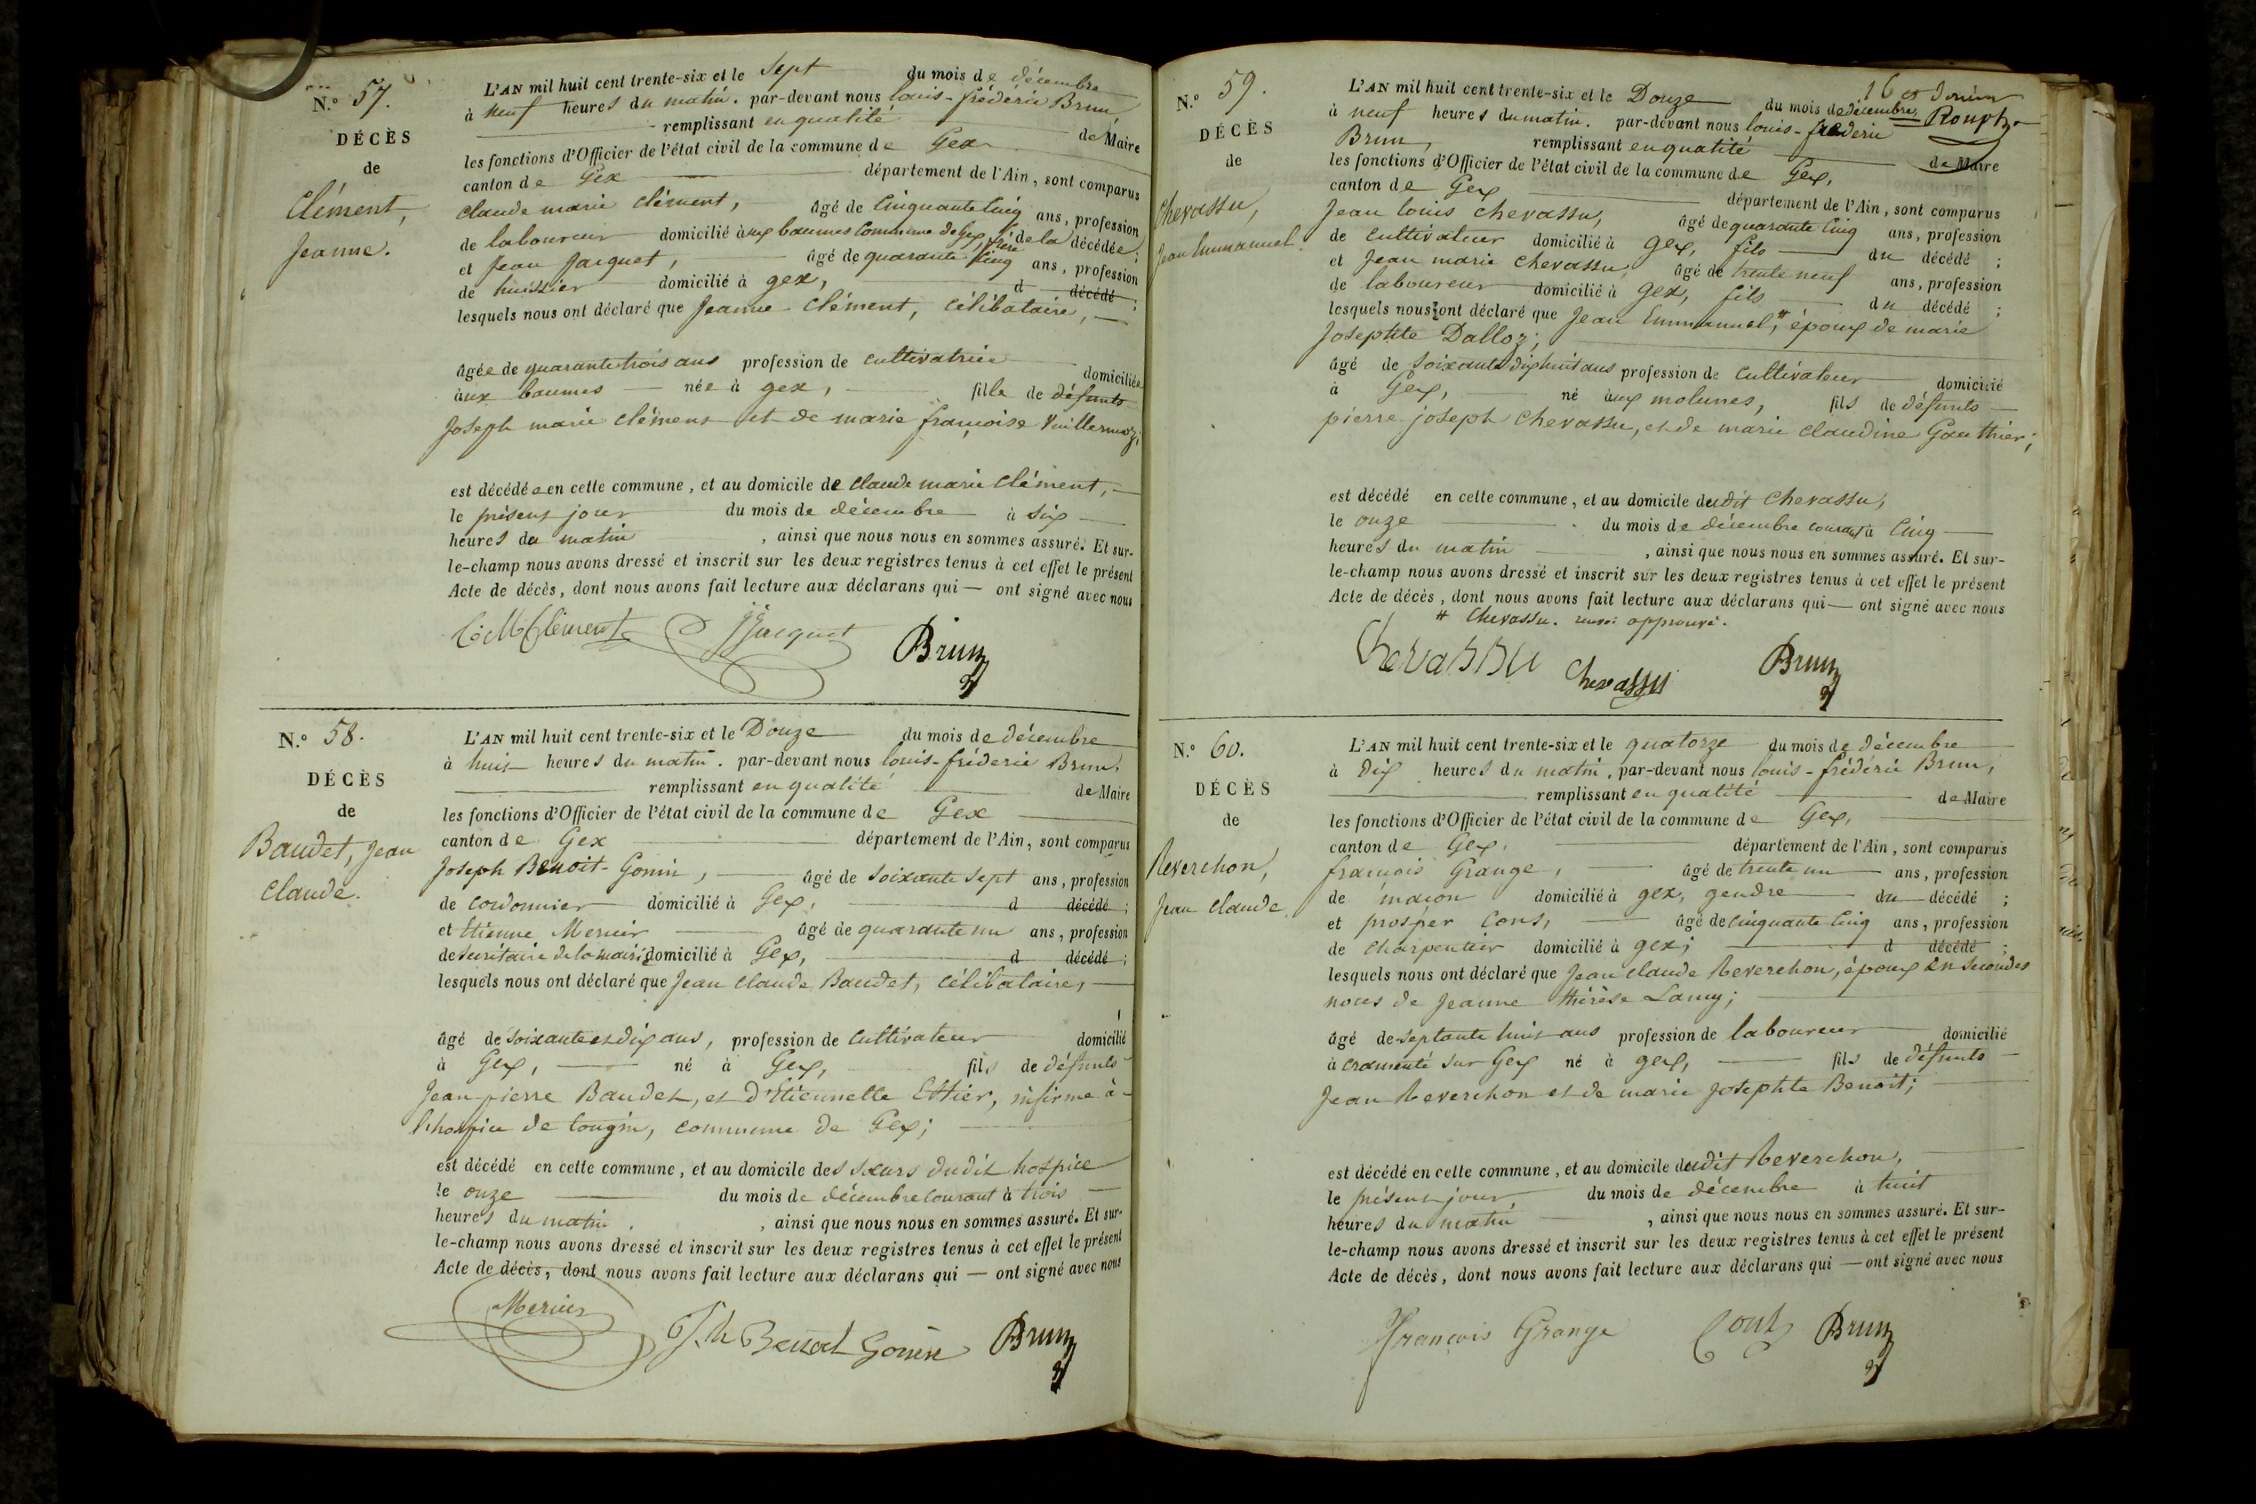 N.° 57.
DÉCÈS
de
Clément,
Jeanne.
L'AN mil huit cent trente-six et le Sept du mois de décembre
à neuf heures du matin. par-devant nous louis-frédéric Brun,
remplissant en qualité de Maire
les fonctions d'Officier de l'état civil de la commune de Gex
canton de Gex département de l'Ain, sont comparus
claude marie clément, âgé de Cinquante Cinq ans, profession
de laboureur domicilié aux baumes Commune de Gex, frère de la décédée;
et Jean Jacquet, âgé de quarante Cinq ans, profession
de huissier domicilié à gex, d décédé;
lesquels nous ont déclaré que Jeanne Clément, Célibataire,
âgée de quarante trois ans profession de cultivatrice domiciliée
aux baumes née à gex, fille de défunts
Joseph marie Clément et de marie françoise Vuillermoz;
est décédée en cette commune, et au domicile de Claude marie Clément,
le présent jour du mois de décembre à Six
heures du matin, ainsi que nous nous en sommes assuré. Et sur-
le-champ nous avons dressé et inscrit sur les deux registres tenus à cet effet le présent
Acte de décès, dont nous avons fait lecture aux déclarans qui — ont signé avec nous
C. M Clement JJacquet Brun
N.° 58.
DÉCÈS
de
Baudet, Jean
Claude.
L'AN mil huit cent trente-six et le Douze du mois de décembre
à huit heures du matin. par-devant nous louis-fréderic Brun,
remplissant en qualité de Maire
les fonctions d'Officier de l'état civil de la commune de Gex
canton de Gex département de l'Ain, sont comparus
Joseph Benoit-Gonin, âgé de soixante sept ans, profession
de cordonnier domicilié à Gex, d décédé;
et Etienne Mercier âgé de quarante un ans, profession
de secrétaire de la mairie domicilié à Gex, d décédé;
lesquels nous ont déclaré que Jean Claude Baudet, Célibataire,
âgé de soixante et dix ans, profession de Cultivateur domicilié
à Gex, né à Gex, fils de défunts
Jean pierre Baudet, et d'Etiennette Ettier, infirme à
l'hospice de tougin, commune de Gex;
est décédé en cette commune, et au domicile des sœurs dudit hospice
le onze du mois de décembre courant à trois
heures du matin, ainsi que nous nous en sommes assuré. Et sur-
le-champ nous avons dressé et inscrit sur les deux registres tenus à cet effet le présent
Acte de décès, dont nous avons fait lecture aux déclarans qui — ont signé avec nous
Mercier J. h Benoit Gonin Brun
N.° 59.
DÉCÈS
de
Chevassu,
Jean Emmanuel.
16 et dernier
Rouph
L'AN mil huit cent trente-six et le Douze du mois de décembre,
à neuf heures du matin. par-devant nous louis-frederic
Brun, remplissant en qualité de Maire
les fonctions d'Officier de l'état civil de la commune de Gex,
canton de Gex département de l'Ain, sont comparus
Jean louis chevassu, âgé de quarante Cinq ans, profession
de Cultivateur domicilié à gex, fils du décédé;
et Jean marie chevassu, âgé de trente neuf ans, profession
de laboureur domicilié à gex, fils du décédé;
lesquels nous ont déclaré que Jean Emmanuel, # époux de marie
Josephte Dalloz;
âgé de soixante dix huit ans profession de Cultivateur domicilié
à Gex, né aux molunes, fils de défunts
pierre joseph chevassu, et de marie claudine Gauthier;
est décédé en cette commune, et au domicile dudit Chevassu,
le onze du mois de décembre courant à Cinq
heures du matin, ainsi que nous nous en sommes assuré. Et sur-
le-champ nous avons dressé et inscrit sur les deux registres tenus à cet effet le présent
Acte de décès, dont nous avons fait lecture aux déclarans qui — ont signé avec nous
# Chevassu. renvoi approuvé.
Chevassu Chevassu Brun
N.° 60.
DÉCÈS
de
Reverchon,
Jean Claude.
L'AN mil huit cent trente-six et le quatorze du mois de décembre
à Dix heures du matin, par-devant nous louis-frédéric Brun,
remplissant en qualité de Maire
les fonctions d'Officier de l'état civil de la commune de Gex,
canton de Gex. département de l'Ain, sont comparus
françois Grange, âgé de trente un ans, profession
de maçon domicilié à gex, gendre du décédé;
et prosper Cons, âgé de cinquante Cinq ans, profession
de charpentier domicilié à gex; d décédé;
lesquels nous ont déclaré que Jean Claude Reverchon, époux en secondes
noces de Jeanne thérèse Lamy;
âgé de septante huit ans profession de laboureur domicilié
à cramenté sur Gex né à gex, fils de défunts
Jean Reverchon et de marie Josephte Benoit;
est décédé en cette commune, et au domicile dudit Reverchon,
le présent jour du mois de décembre à huit
heures du matin, ainsi que nous nous en sommes assuré. Et sur-
le-champ nous avons dressé et inscrit sur les deux registres tenus à cet effet le présent
Acte de décès, dont nous avons fait lecture aux déclarans qui — ont signé avec nous
François Grange Cons Brun